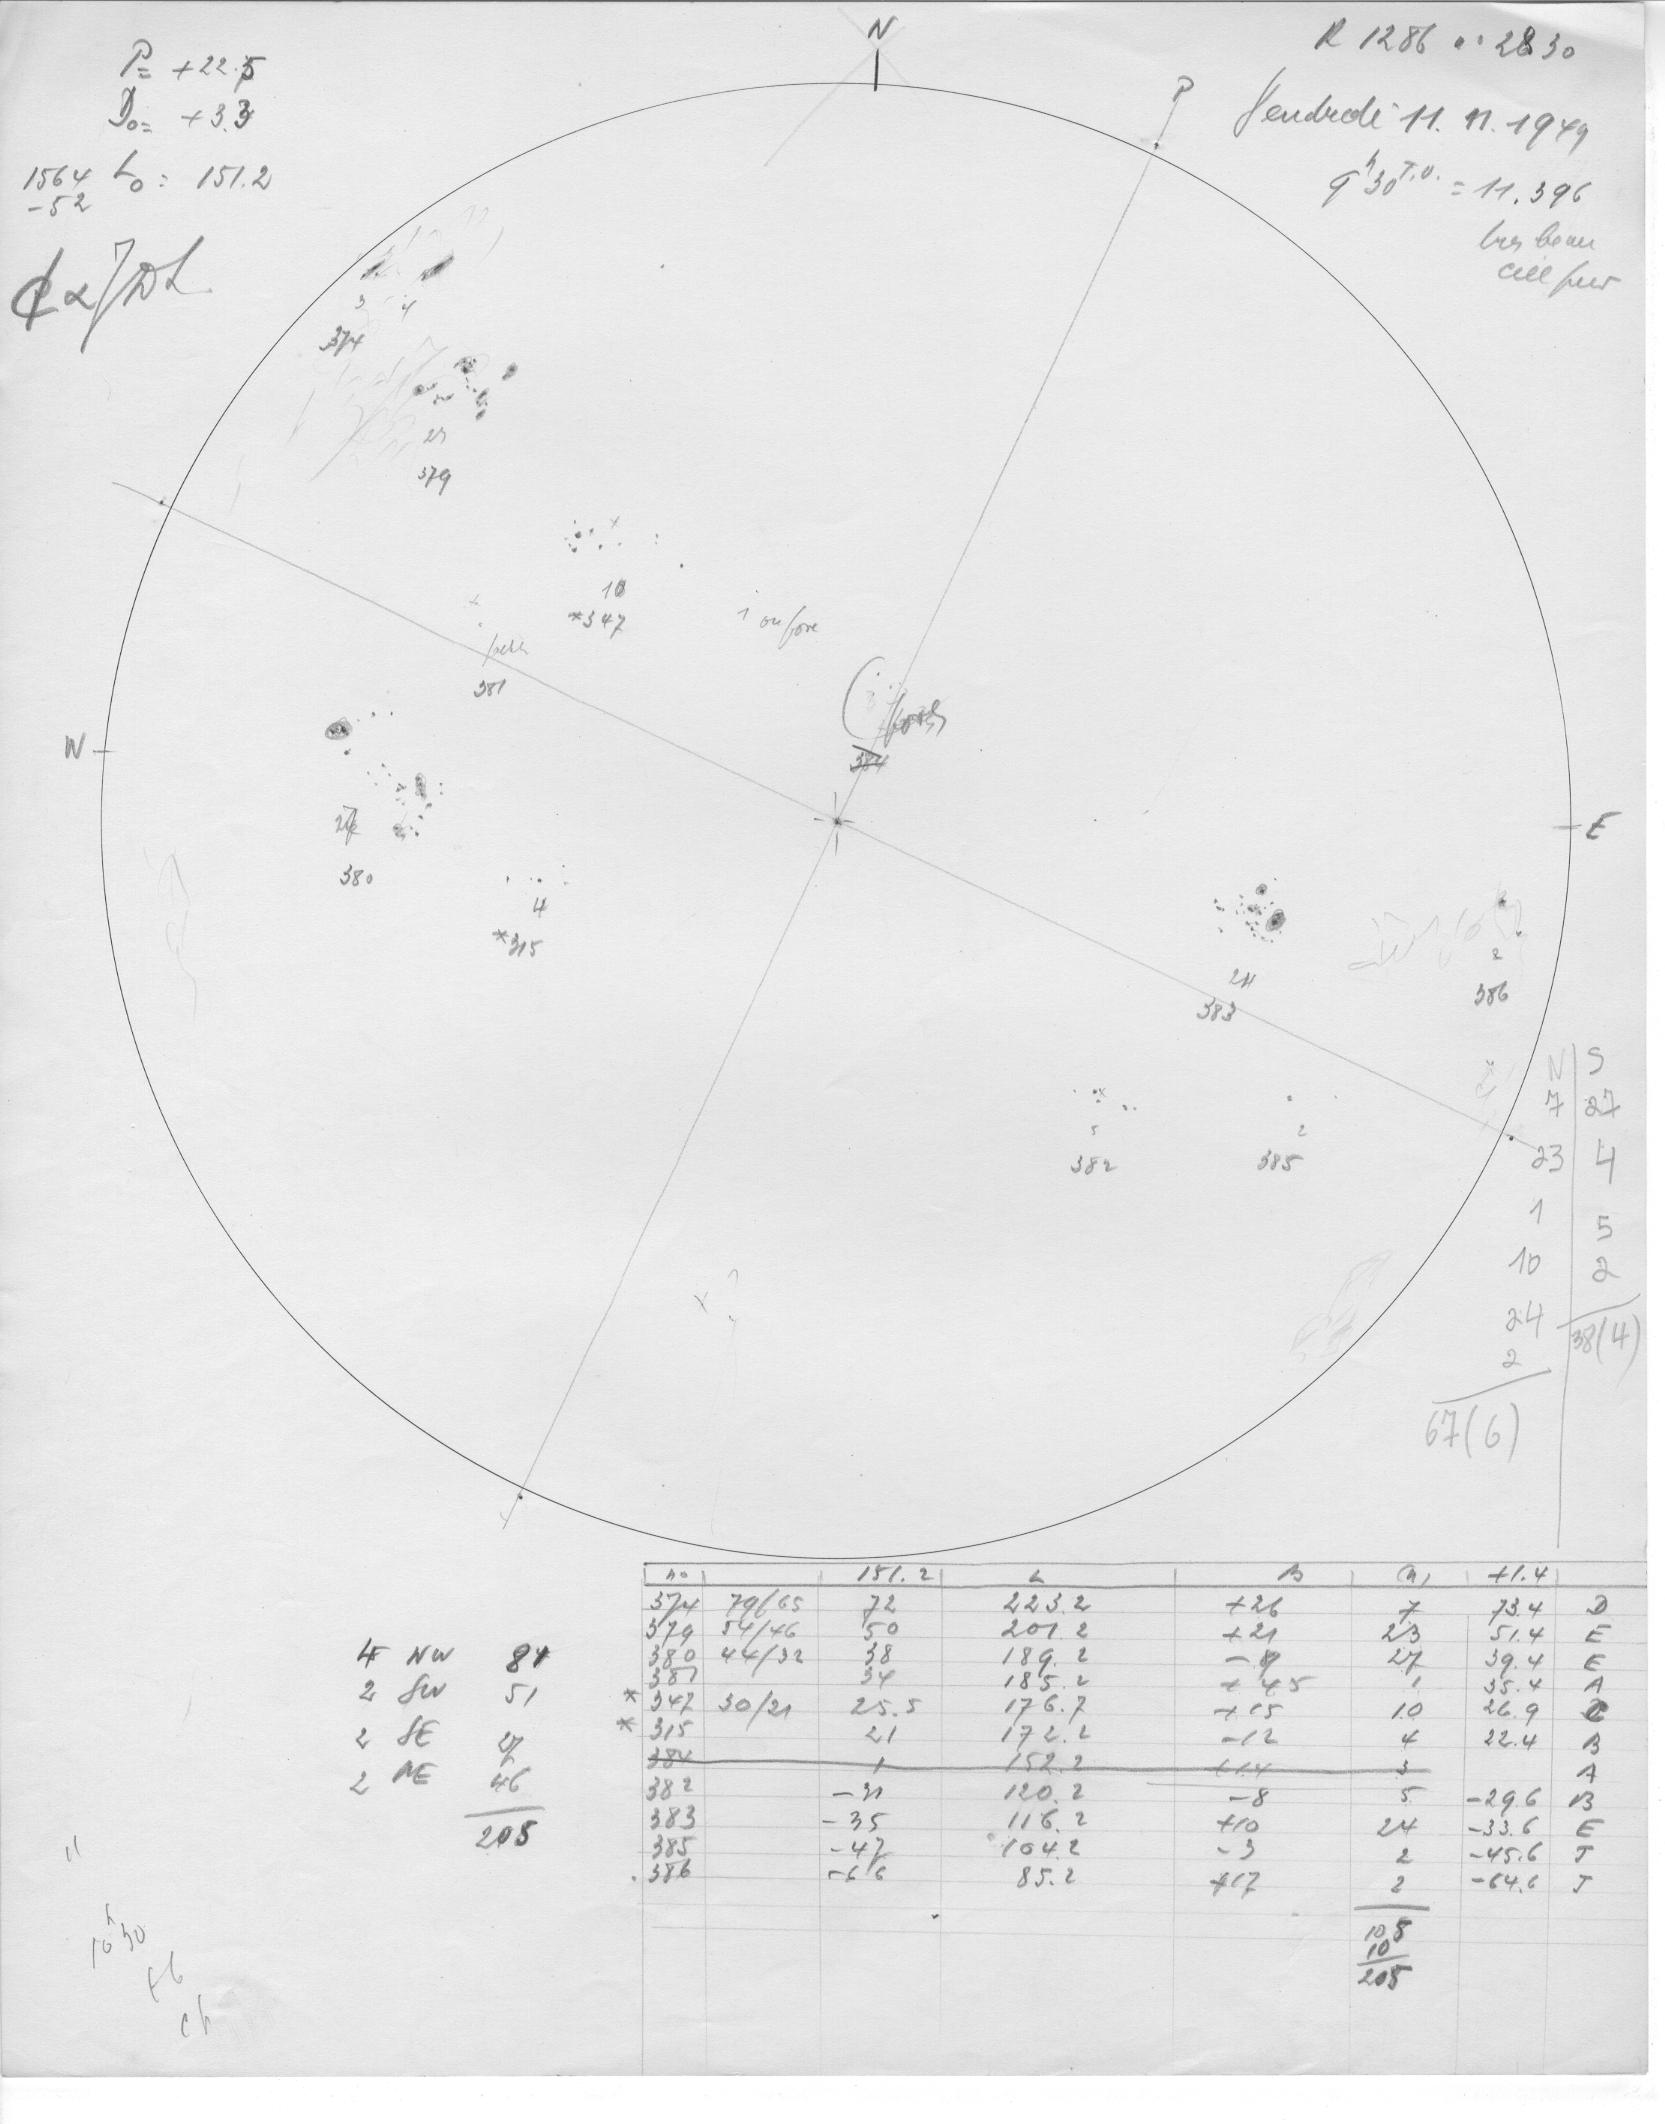 N
R 1286 2830
P= +22.5
Do= +3.3
1564 Lo= 151.2
-52
P
Vendredi 11. 11. 1949
9h30 T.U. = 11.396
très beau
ciel pur
3 4
374
23
379
10
*347
381
384
W
27
380
4
*315
E
24
383
2
386
5
382
2
385
N S
7 27
23 4
1 5
10 2
24 38(4)
2
67(6)
no 151.2 L B (n) +1.4
374 79/65 72 223.2 +26 7 73.4 D
379 54/46 50 201.2 +21 23 51.4 E
380 44/32 38 189.2 -9 27 39.4 E
381 34 185.2 1 35.4 A
*347 30/21 25.5 176.7 +15 10 26.9 C
*315 21 172.2 -12 4 22.4 B
384 1 152.2 +14 3 A
382 -31 120.2 -8 5 -29.6 B
383 -35 116.2 +10 24 -33.6 E
385 -47 104.2 -3 2 -45.6 J
386 -66 85.2 +17 2 -64.6 J
105
10
205
4 NW 81
2 SW 51
2 SE 27
2 NE 46
205
10h30